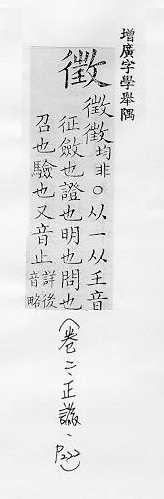 增廣字學舉隅
徵
徵徵均非○从一从王音
征斂也證也明也問也
召也驗也又音止詳後音略
(卷二、正譌、P222)